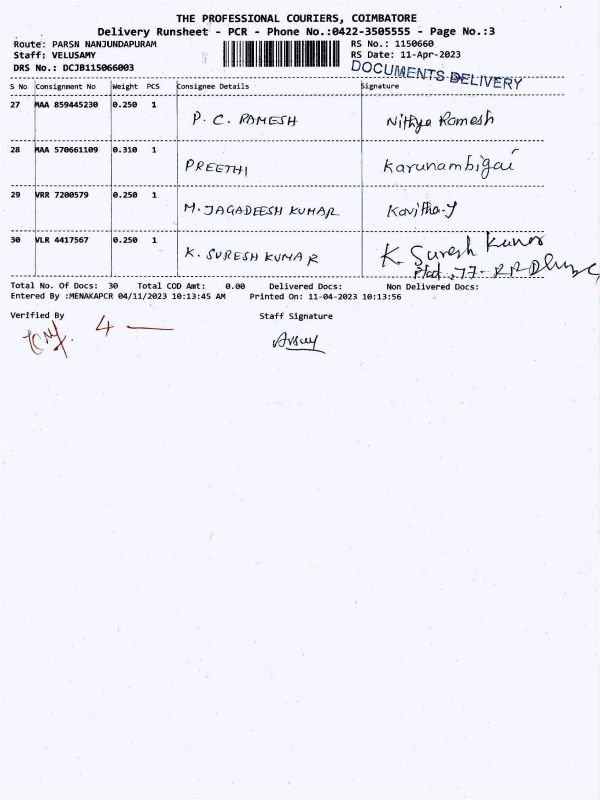 THE PROFESSIONAL COURIERS, COIMBATORE
Delivery Runsheet - PCR - Phone No.:0422-3505555 - Page No.:3
Route: PARSN NANJUNDAPURAM RS No.: 1150660
Staff: VELUSAMY RS Date: 11-Apr-2023
DRS No.: DCJB115066003 DOCUMENTS DELIVERY
S No Consignment No Weight PCS Consignee Details Signature
27 MAA 859445230 0.250 1
P. C. RAMESH Nithya Ramesh
28 MAA 570661109 0.310 1
PREETHI Karunambigai
29 VRR 7200579 0.250 1
M. JAGADEESH KUMAR Kavitha.J
30 VLR 4417567 0.250 1
K. SURESH KUMAR K Suresh Kumar
Total No. Of Docs: 30 Total COD Amt: 0.00 Delivered Docs: Non Delivered Docs:
Entered By :MENAKAPCR 04/11/2023 10:13:45 AM Printed On: 11-04-2023 10:13:56
Verified By Staff Signature
4 —